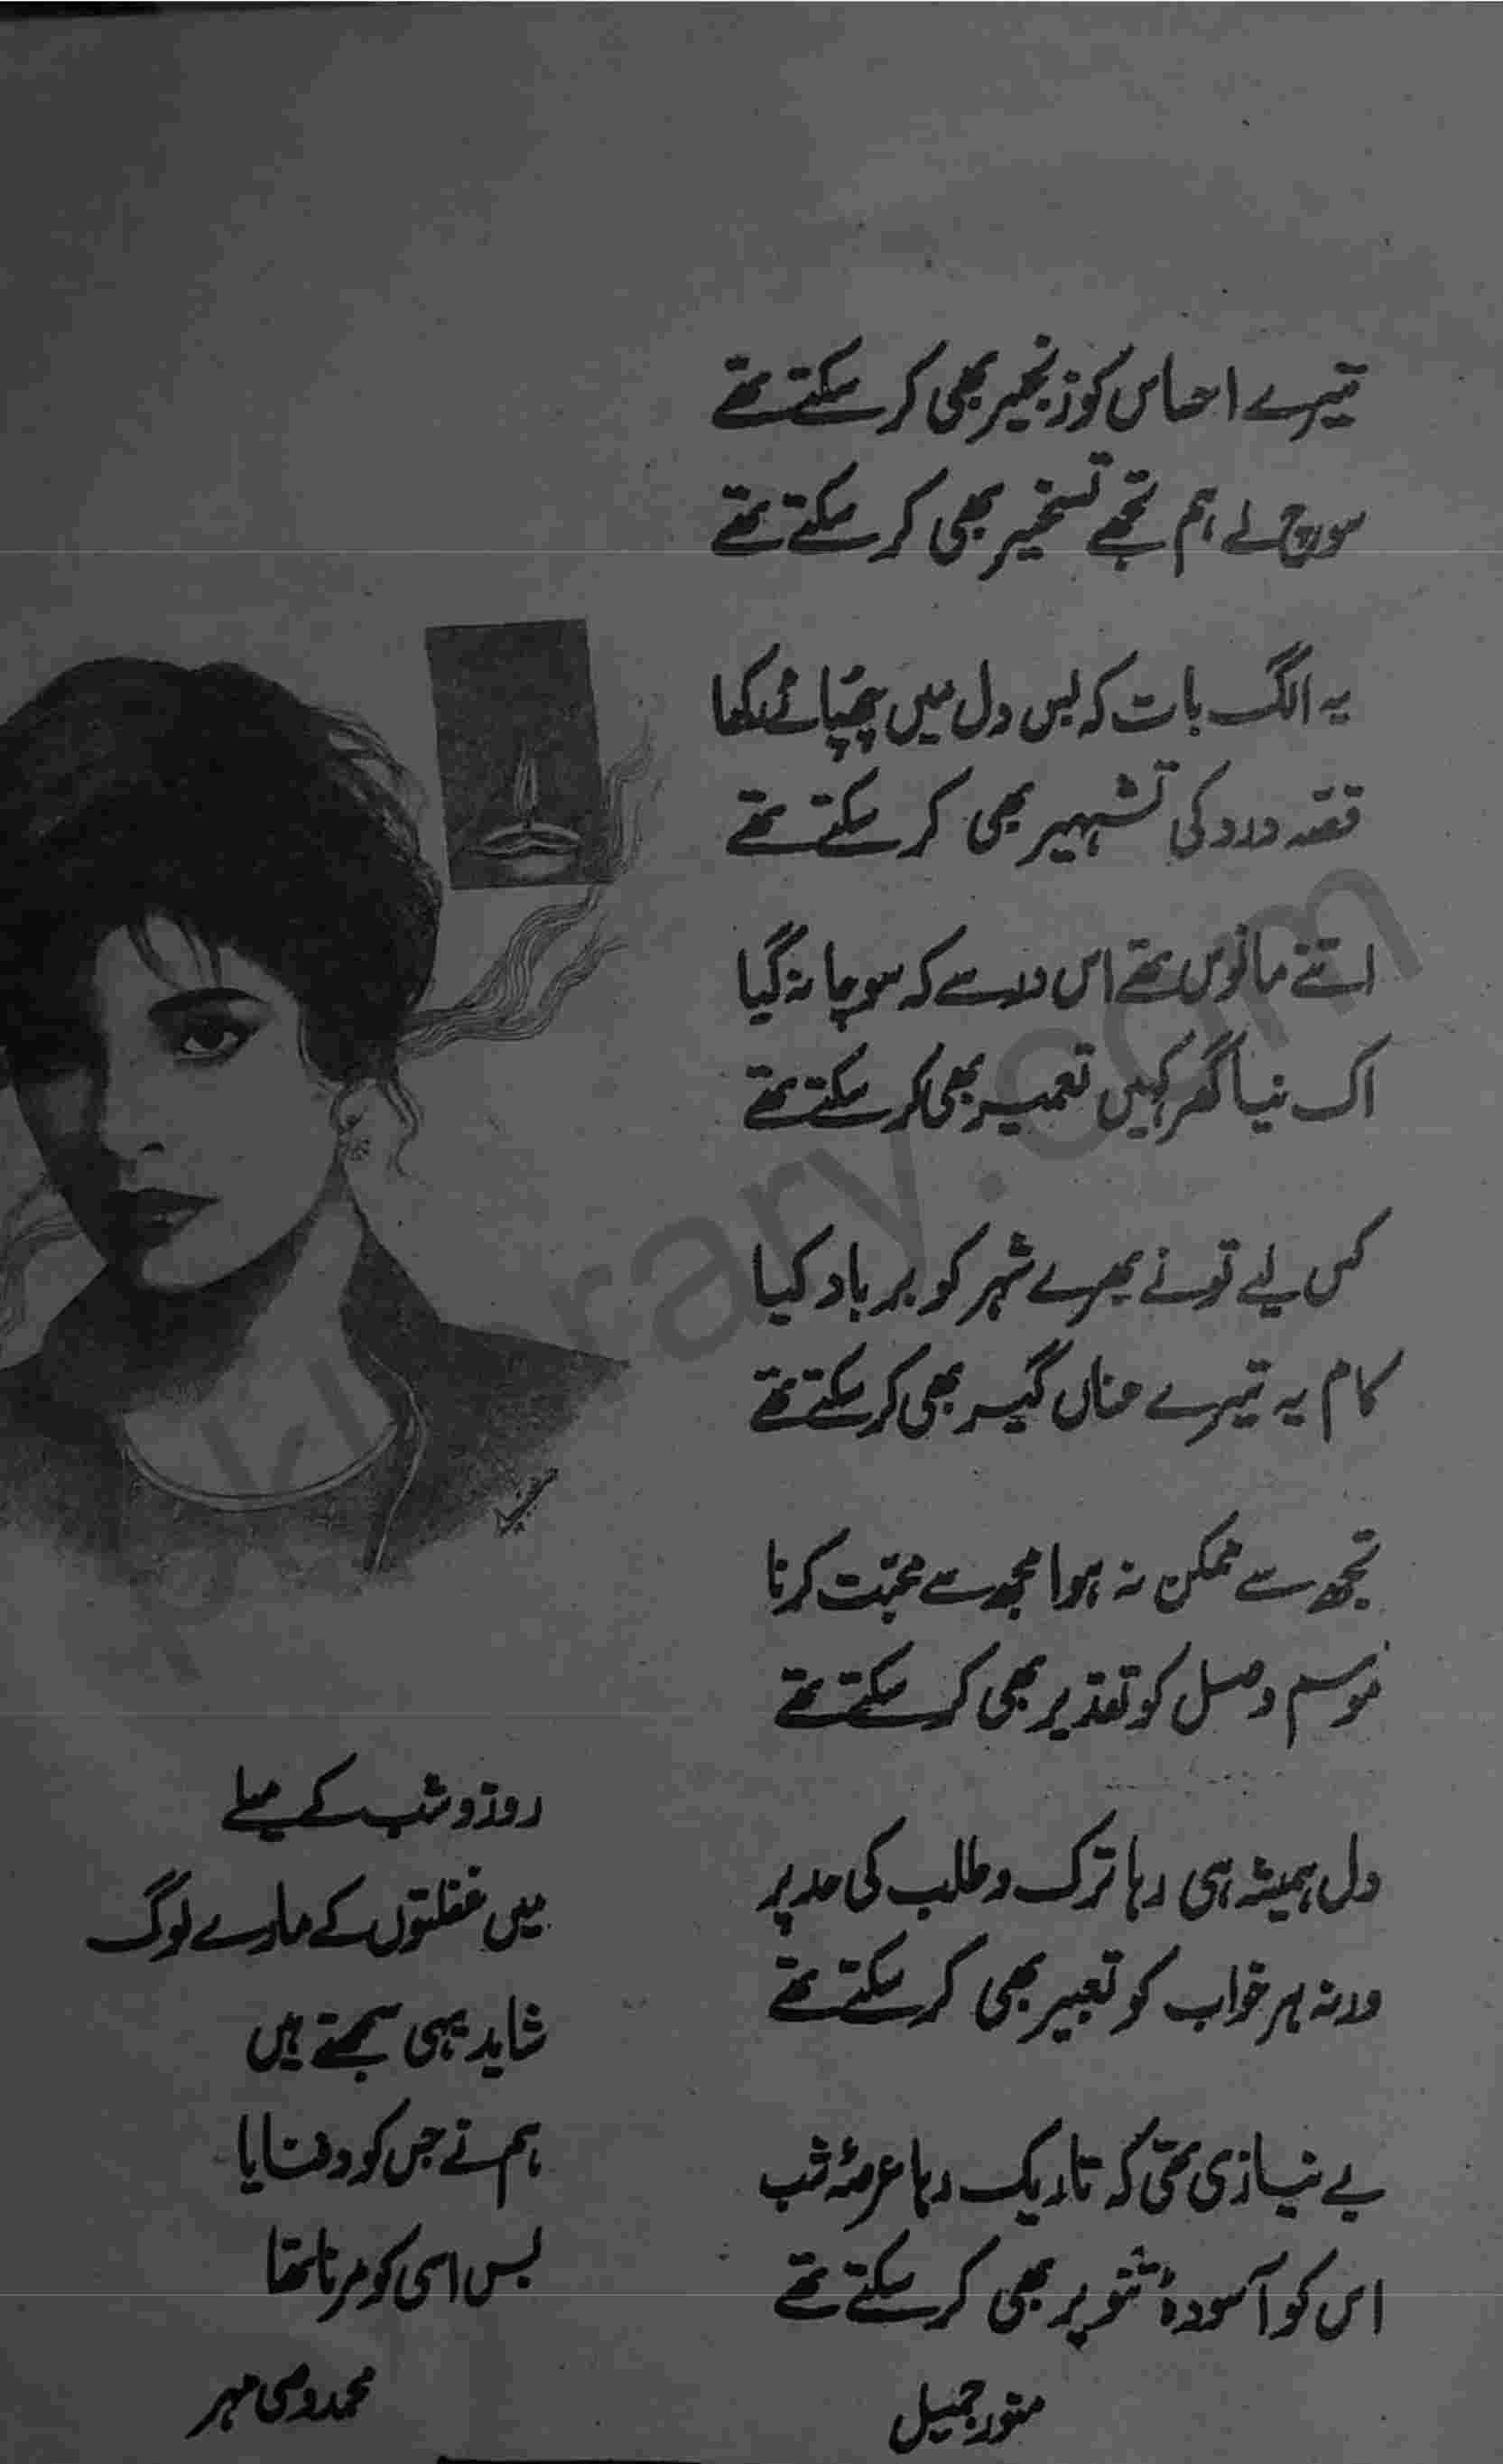 تیرے احساس کو زنجیر بھی کر سکتے تھے
سوچ لے ہم تجھے تسخیر بھی کر سکتے تھے
یہ الگ بات کہ بس دل میں چھپائے رکھا
قصہ درد کی تشہیر بھی کر سکتے تھے
اتنے مانوس تھے اس در سے کہ سوچا نہ گیا
اک نیا گھر کہیں تعمیر بھی کر سکتے تھے
کس لیے تو نے بھرے شہر کو برباد کیا
کام یہ تیرے عناں گیر بھی کر سکتے تھے
تجھ سے ممکن نہ ہوا مجھ سے محبّت کرنا
موسم وصل کو تقدیر بھی کر سکتے تھے
دل ہمیشہ ہی رہا ترک و طلب کی حد پر
ورنہ ہر خواب کو تعبیر بھی کر سکتے تھے
بے نیازی تھی کہ تاریک رہا عرصۂ شب
اس کو آسودۂ تنویر بھی کر سکتے تھے
منور جمیل
روز و شب کے میلے
میں غفلتوں کے مارے لوگ
شاید یہی سمجھتے ہیں
ہم نے جس کو دفنایا
بس اسی کو مرنا تھا
محمد وصی مہر
rary.com